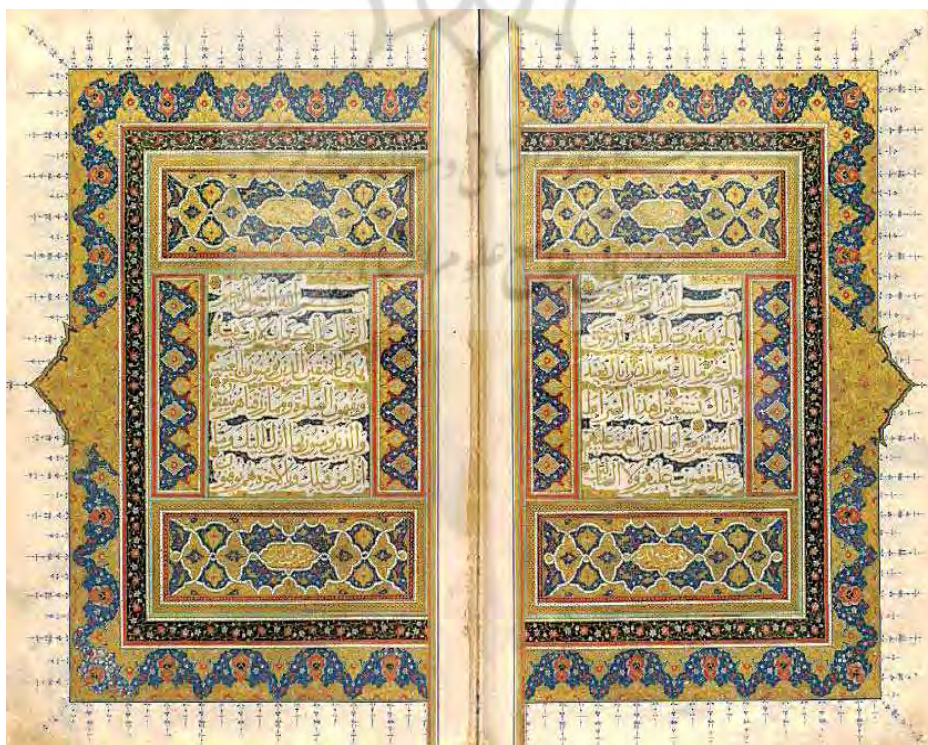 بسم الله الرحمن الرحيم
الحمد لله رب العالمين الرحمن
الرحيم مالك يوم الدين اياك نعبد
واياك نستعين اهدنا الصراط
المستقيم صراط الذين انعمت عليهم
غير المغضوب عليهم ولا الضالين
بسم الله الرحمن الرحيم
الم ذلك الكتاب لا ريب فيه
هدى للمتقين الذين يؤمنون بالغيب
ويقيمون الصلوة ومما رزقناهم ينفقون
والذين يؤمنون بما انزل اليك وما
انزل من قبلك وبالاخرة هم يوقنون